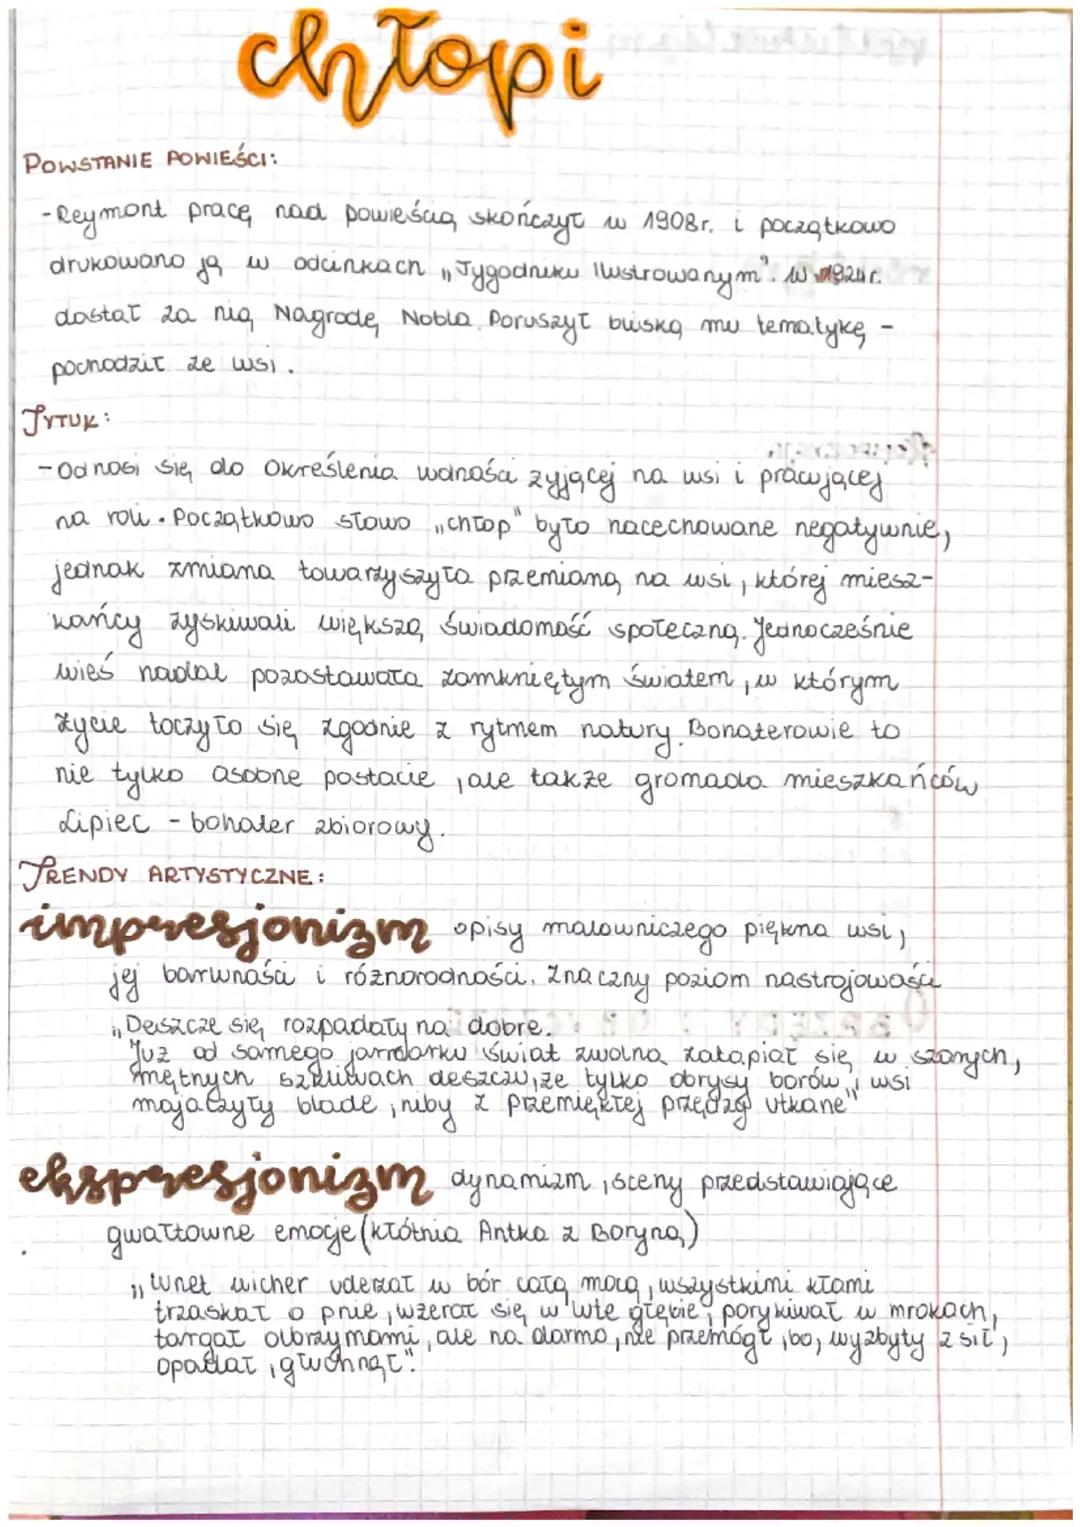 chłopi
POWSTANIE POWIEŚCI:
-Reymont pracę nad powieścią skończył w 1908r. i początkowo
drukowano ją w odcinkach „Tygodniku Ilustrowanym". W 1924r.
dostał za nią Nagrodę Nobla. Poruszył bliską mu tematykę -
pochodził ze wsi.
TYTUŁ:
-Odnosi się do określenia ludności żyjącej na wsi i pracującej
na roli. Początkowo słowo „chłop" było nacechowane negatywnie,
jednak zmiana towarzyszyła przemianą na wsi, której miesz-
kańcy zyskiwali większą świadomość społeczną. Jednocześnie
wieś nadal pozostawała zamkniętym światem, w którym
życie toczyło się zgodnie z rytmem natury. Bohaterowie to
nie tylko osobne postacie, ale także gromada mieszkańców
Lipiec - bohater zbiorowy.
TRENDY ARTYSTYCZNE:
impresjonizm opisy malowniczego piękna wsi,
jej barwności i różnorodności. Znaczny poziom nastrojowości
„Deszcze się rozpadały na dobre.
Już od samego jarmarku świat zwolna zatapiał się w szarych,
mętnych szkliwach deszczu, że tylko obrysy borów i wsi
majaczyły blade, niby z przemiękłej przędzy utkane"
ekspresjonizm dynamizm, sceny przedstawiające
gwałtowne emocje (kłótnia Antka z Boryną)
„Wnet wicher uderzał w bór całą mocą, wszystkimi kłami
trzaskał o pnie, wżerał się w głębie, porykiwał w mrokach,
targał olbrzymami, ale na darmo, nie przemógł, bo, wyzbyty z sił,
opadał, głuchnął".